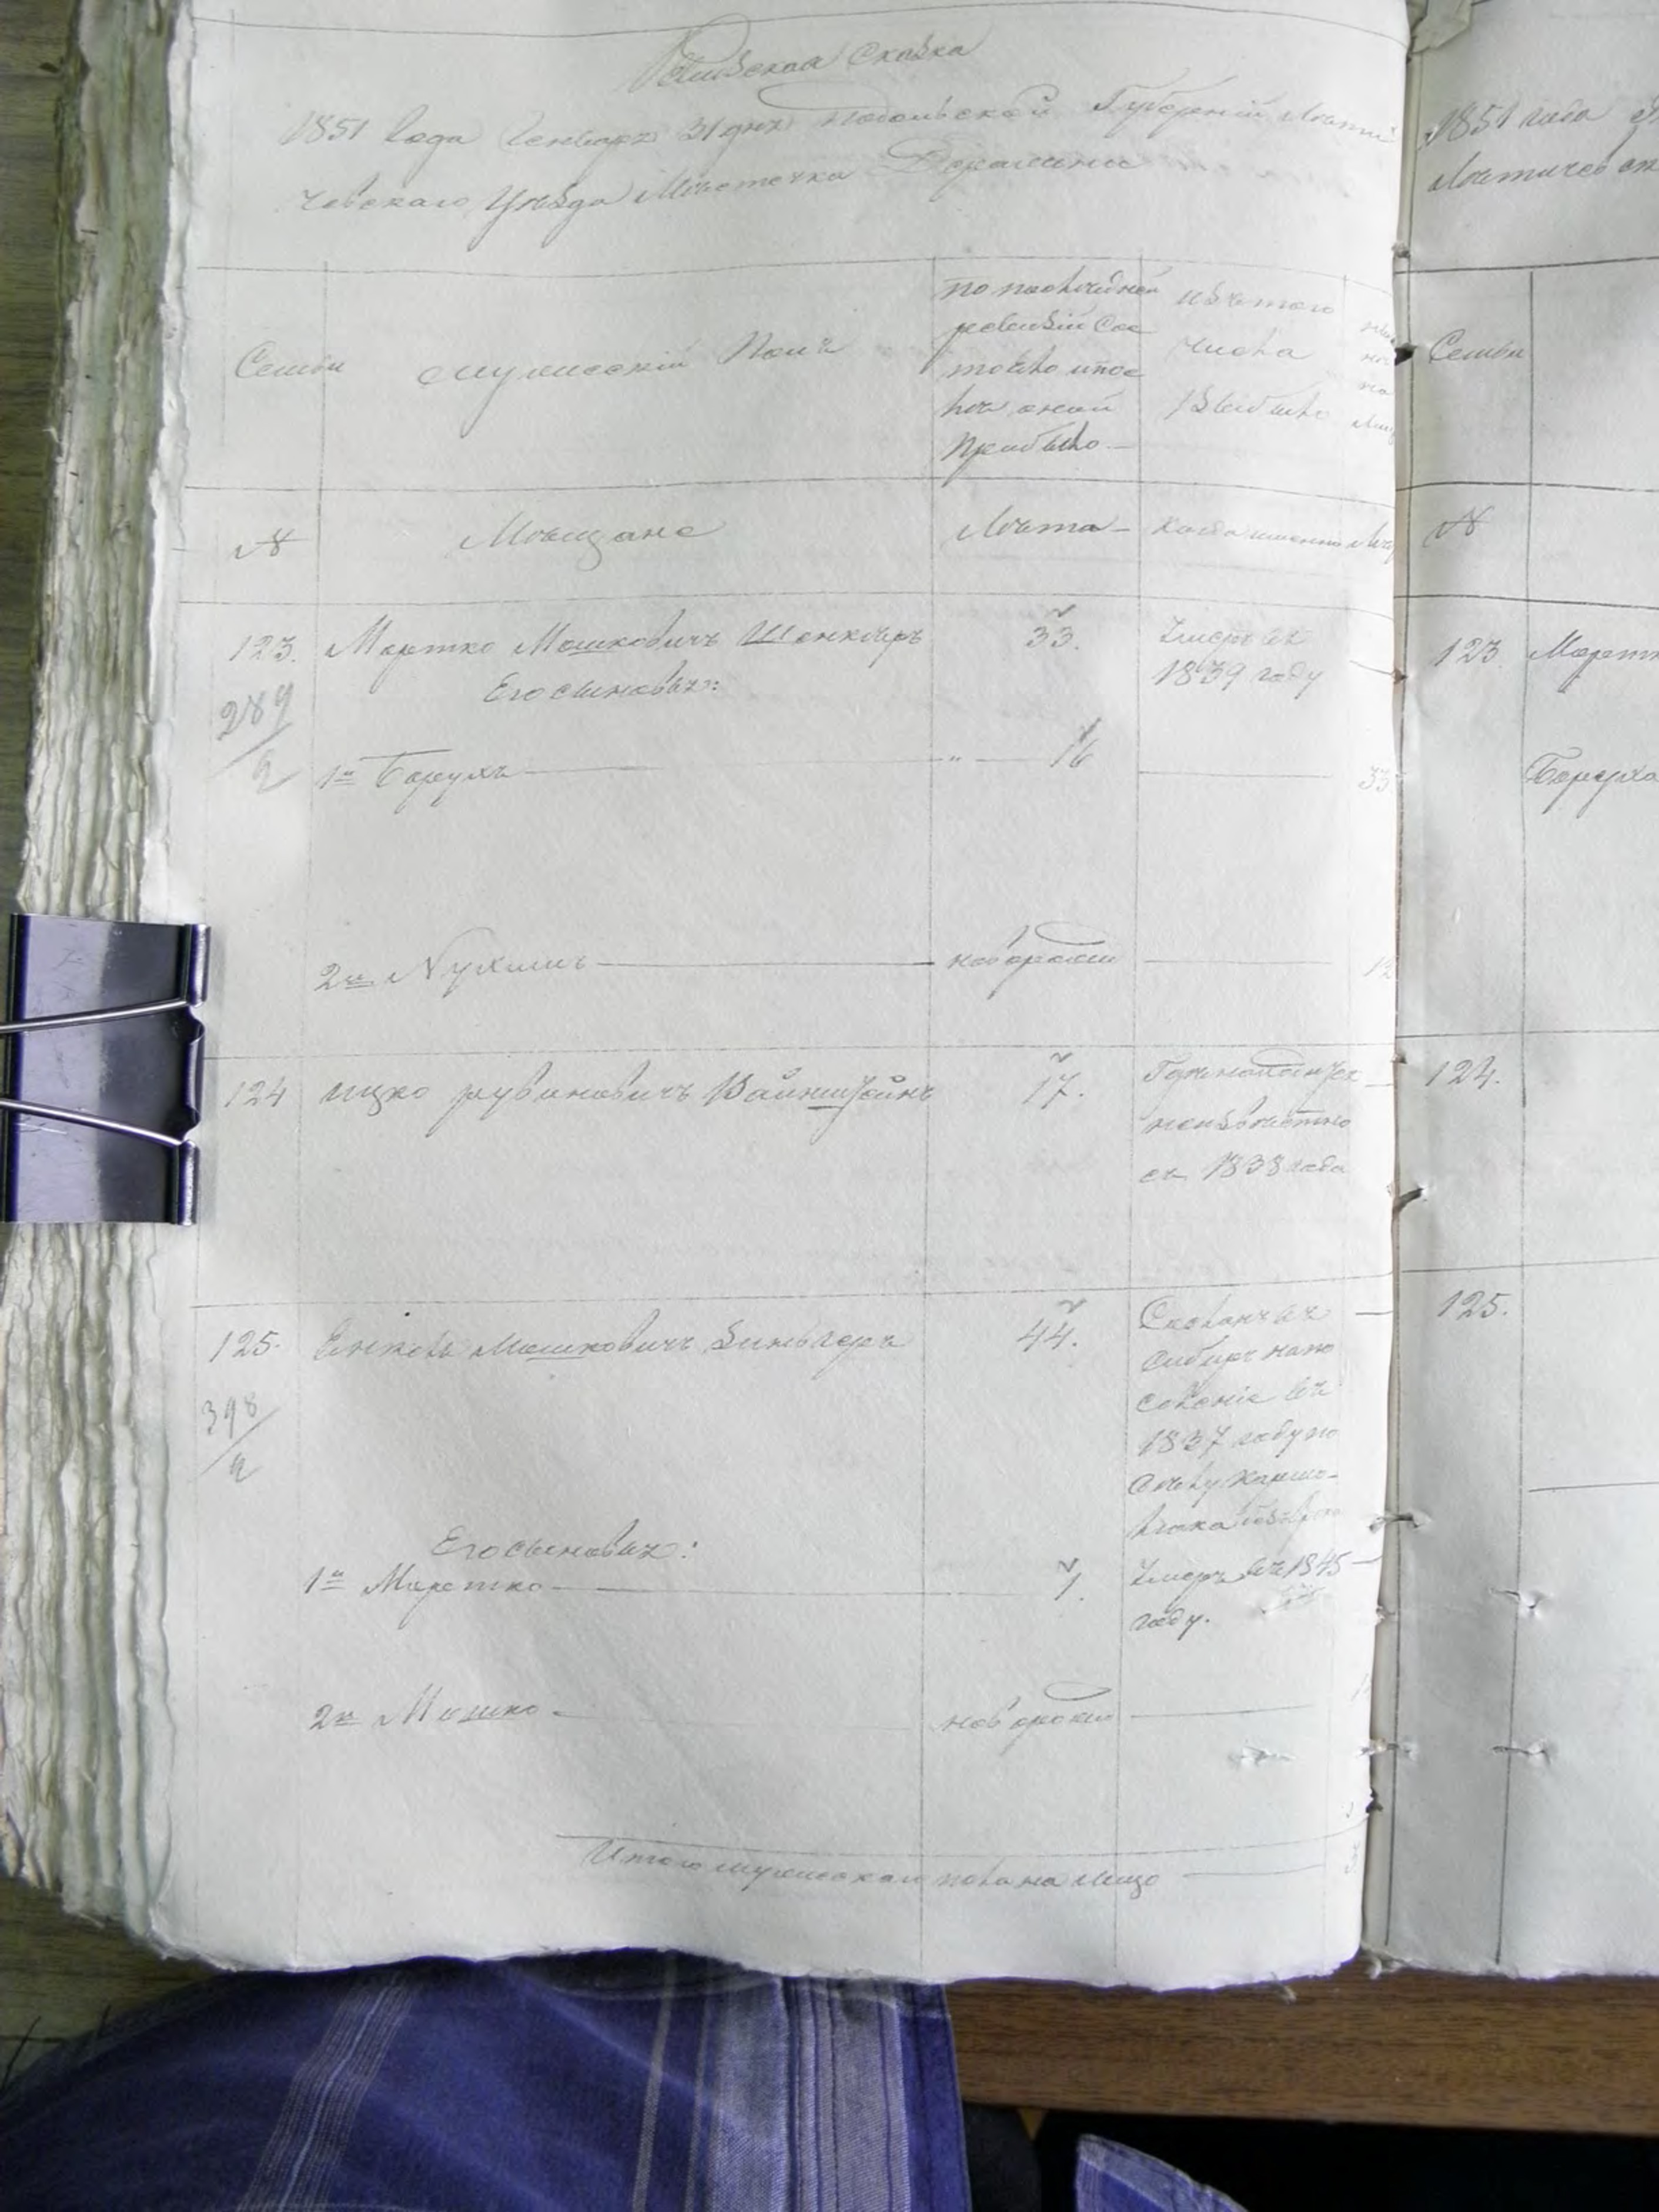 Ревизская Сказка
1851 года Генваря 31 дня Подольской Губерніи Лѣтичевскаго Уѣзда Мѣстечка Деражни
Семьи
Мужескій Полъ
по последней ревизіи состояло и после оной Прибыло
изъ того числа выбыло
№
Мѣщане
Лѣта
Когда именно
123.
Мортко Мошковичъ Шенкеръ
33.
Умеръ въ 1839 году
Его сыновья:
289/2
1й Борухъ
16
33
2й Нухимъ
новорожд
12
124
Ицко Рувиновичъ Вайнштейнъ
17.
неизвѣстно съ 1838 года
125.
Енкель Мошковичъ Зингеръ
44.
Сосланъ въ Сибирь на поселеніе въ 1837 году по
398/2
Его сыновья:
1й Мортко
1.
Умеръ въ 1845 году.
2й Мошко
новорожд
Итого мужескаго пола на лицо
1851 года
Лѣтичевск
Семьи
№
123
Мортк
Боруха
124.
125.